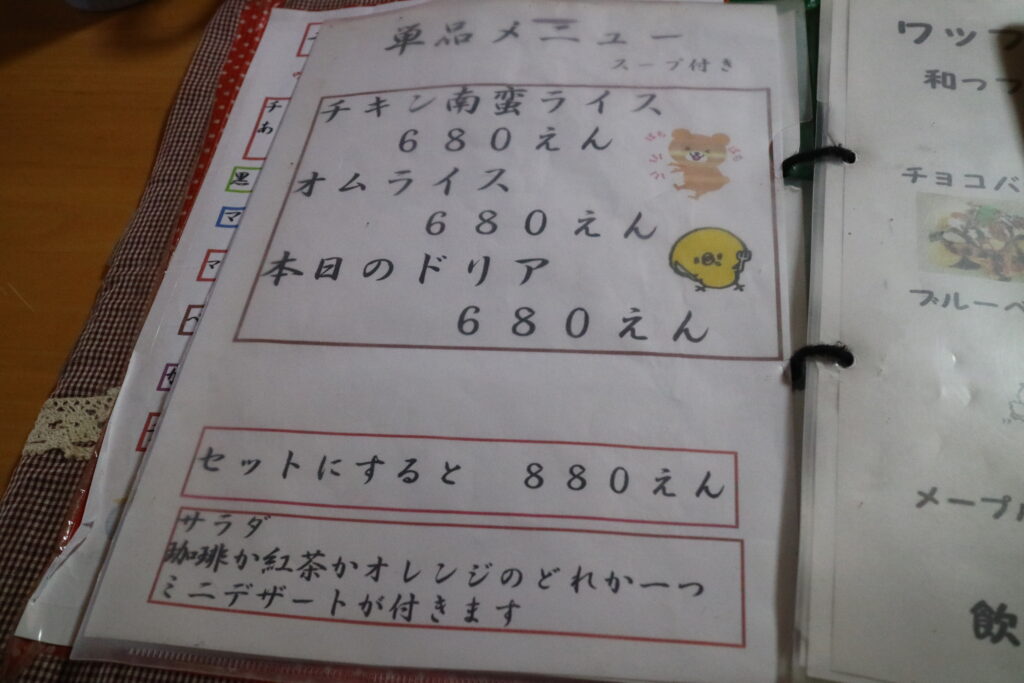 単品メニュー
スープ付き
チキン南蛮ライス
６８０えん
オムライス
６８０えん
本日のドリア
６８０えん
セットにすると　８８０えん
サラダ
珈琲か紅茶かオレンジのどれか一つ
ミニデザートが付きます
チ
あ
黒
マ
マ
ワッフ
和っフ
チョコバ
ブルーベ
メープル
飲